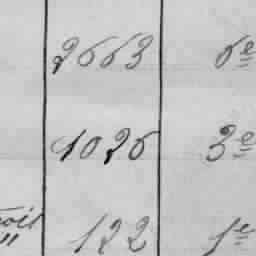 2663 6e
1026 3e
122 1e